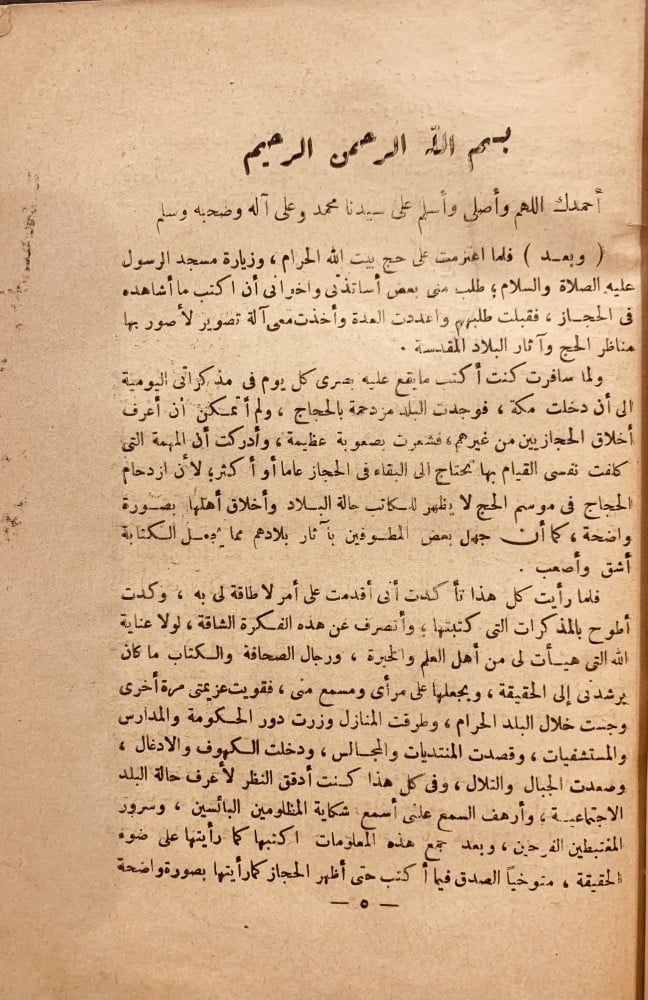 بسم الله الرحمن الرحيم
أحمدك اللهم وأصلي وأسلم على سيدنا محمد وعلى آله وصحبه وسلم
( وبعـد ) فلما اعتزمت على حج بيت الله الحرام ، وزيارة مسجد الرسول
عليه الصلاة والسلام ؛ طلب منى بعض أساتذتى واخوانى أن اكتب ما أشاهده
فى الحجـاز ، فقبلت طلبهم واعددت العدة وأخذت معى آلة تصوير لأصور بها
مناظر الحج وآثار البلاد المقدسة .
ولما سافرت كنت أكتب مايقع عليه بصرى كل يوم فى مذكراتى اليومية
الى أن دخلت مكة ، فوجدت البلد مزدحمة بالحجاج ، ولم أتمكن أن أعرف
أخلاق الحجازيين من غيرهم ، فشعرت بصعوبة عظيمة ، وأدركت أن المهمة التى
كلفت نفسى القيام بها تحتاج الى البقاء فى الحجاز عاما أو أكثر ؛ لأن ازدحام
الحجاج فى موسم الحج لا يظهر للكاتب حالة البلاد وأخلاق أهلها بصورة
واضحة ، كما أن جهل بعض المطوفين بآثار بلادهم مما يجعل الكتابة
أشق وأصعب .
فلما رأيت كل هذا تأكدت أنى أقدمت على أمر لا طاقة لى به ، وكدت
أطوح بالمذكرات التى كتبتها ، وأنصرف عن هذه الفكرة الشاقة ، لولا عناية
الله التى هيـأت لى من أهل العلم والخبرة ، ورجال الصحافة والكتاب ما كان
يرشدنى إلى الحقيقة ، ويجعلها على مرأى ومسمع منى ، فقويت عزيمتى مرة أخرى
وجست خلال البلد الحرام ، وطرقت المنازل وزرت دور الحكومة والمدارس
والمستشفيات ، وقصدت المنتديات والمجالس ، ودخلت الكهوف والادغال ،
وصعدت الجبال والتلال ، وفى كل هذا كنت أدقق النظر لأعرف حالة البلد
الاجتماعيـة ، وأرهف السمع علنى أسمع شكاية المظلومين البائسين ، وسرور
المغتبطين الفرحين ، وبعد جمع هذه المعلومات اكتبها كما رأيتها على ضوء
الحقيقة ، متوخياً الصدق فيما أكتب حتى أظهر الحجاز كما رأيتها بصورة واضحة
— ٥ —